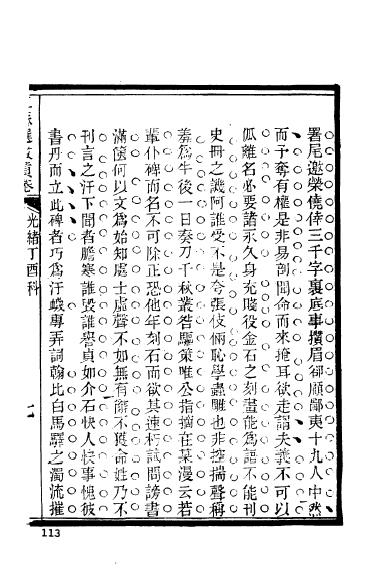 署尾邀榮僥倖三千字裏底事攢眉卻顧鄙夷十九人中然
而予奪有權是非易剖聞命而來掩耳欲走謂夫義不可以
孤離名必要諸永久身充賤役金石之刻畫能爲語不能刊
史冊之譏阿誰受不是夸張伎倆恥學蟲雕也非揣聲稱
羞爲牛後一日奏刀千秋叢咎驅策唯公指摘在某漫云若
輩仆碑而名不可除正恐他年刻石而欲其速朽試問謗書
滿篋何以文爲始知處士虛聲不如無有龍不畏命姓乃不
刊言之汗下聞者膽寒誰毀誰譽貞如介石快人快事愧彼
書丹而立此碑者巧爲汙衊專弄詞翰比白馬驛之濁流摧
光緒丁酉科
113